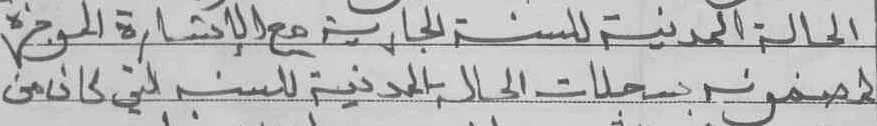 الحالة المدنية للسنة الجارية مع الإشارة الموجزة
لمضمونه بسجلات الحالة المدنية للسنة التي كان من